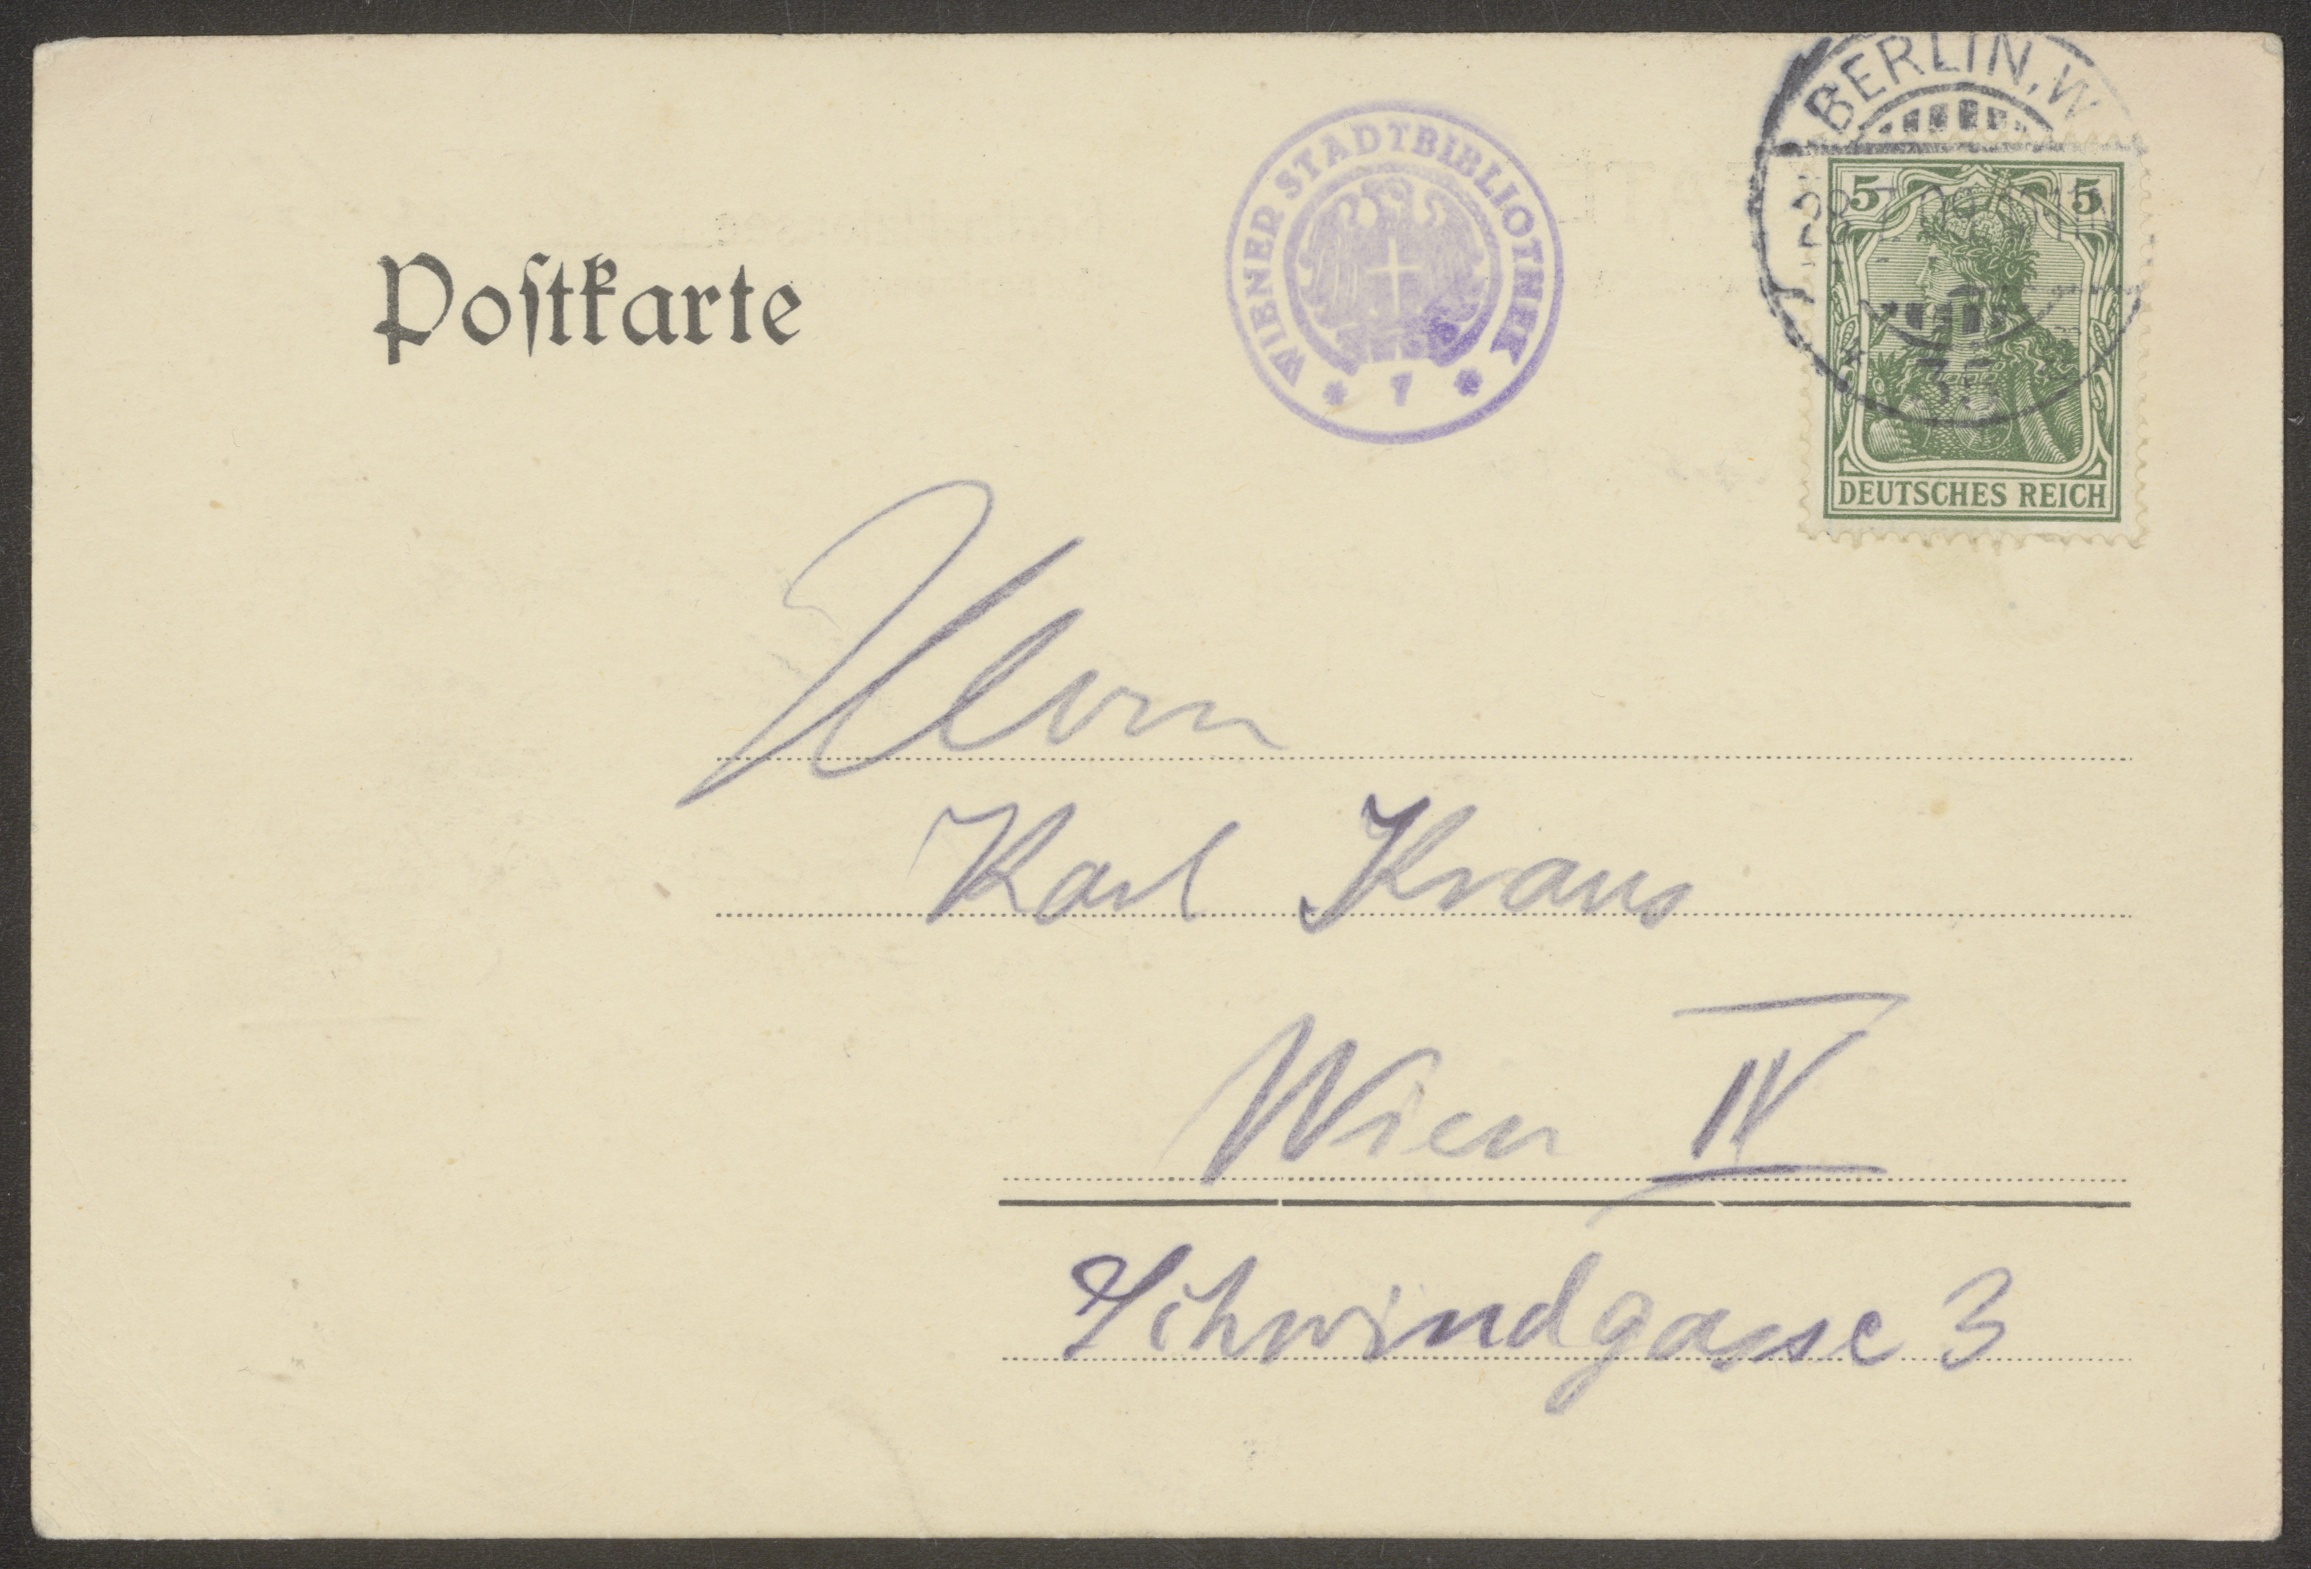 BERLIN, W
WIENER STADTBIBLIOTHEK
* 7 *
5 5
Poſtkarte
35
DEUTSCHES REICH
Herrn
Karl Kraus
Wien IV
Schwindgasse 3